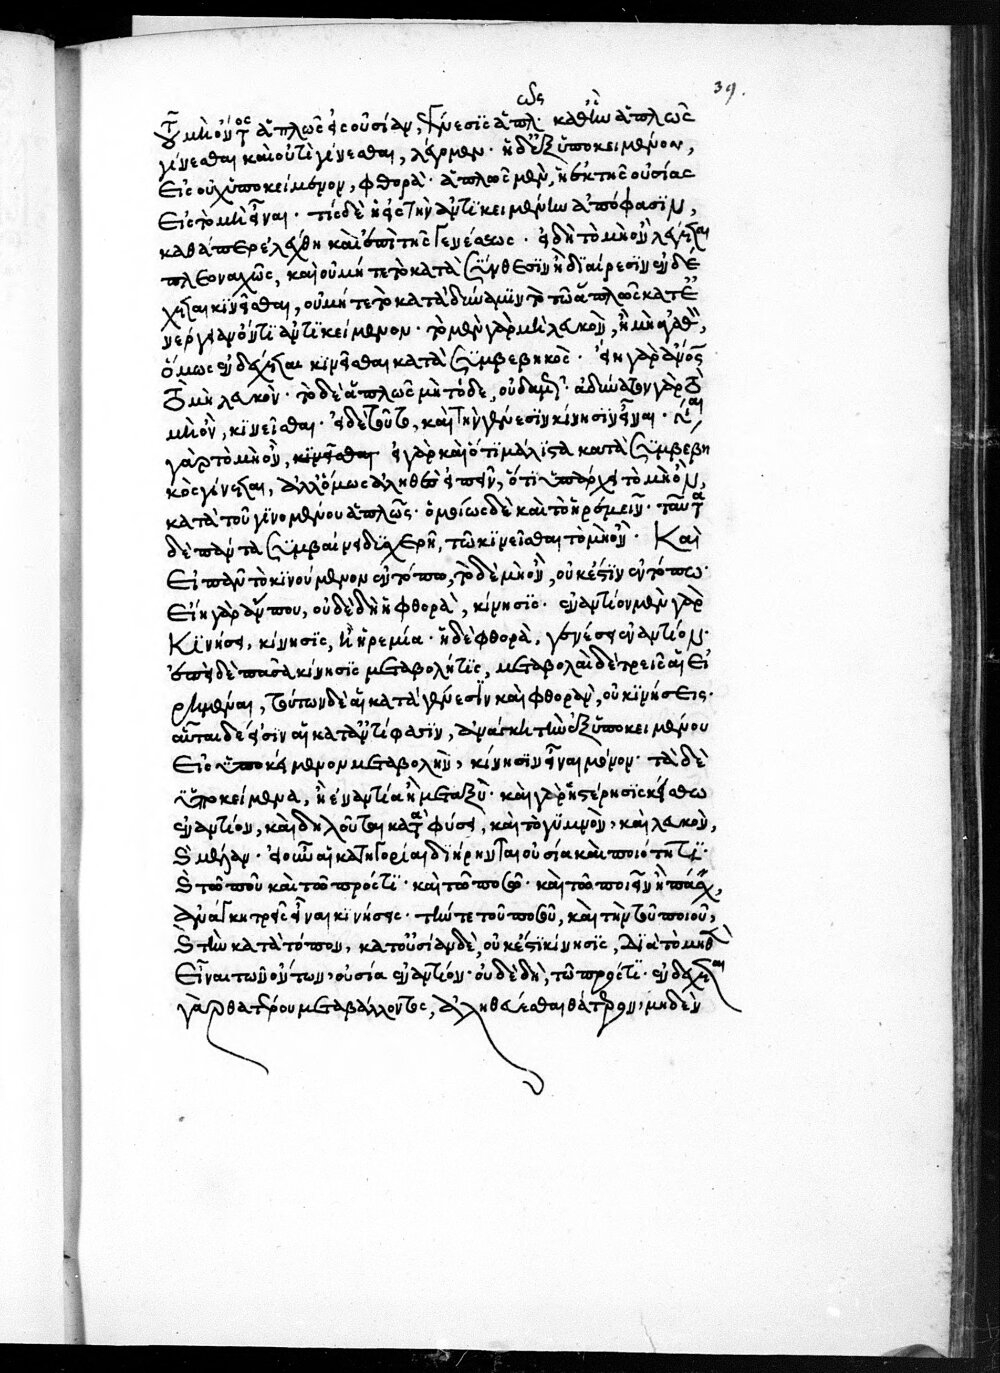 39.
τοῦ μὴ ὄντος ἁπλῶς εἰς οὐσίαν, γένεσις ἁπλῶς· καθ' ἣν ἁπλῶς
γίνεσθαι καὶ οὔ τι γίνεσθαι, λέγομεν· ἡ δ' ἐξ ὑποκειμένου,
εἰς οὐχ ὑποκείμενον, φθορά· ἁπλῶς μὲν, ἡ ἐκ τῆς οὐσίας
εἰς τὸ μὴ εἶναι· τὶς δὲ ἡ εἰς τὴν ἀντικειμένην ἀπόφασιν,
καθάπερ ἐλέχθη καὶ ἐπὶ τῆς γενέσεως· εἰ δὴ τὸ μὴ ὂν λέγεται
πλεοναχῶς, καὶ οὐ μήτε τὸ κατὰ σύνθεσιν ἢ διαίρεσιν ἐνδέ
χεται κινεῖσθαι, οὐ μήτε τὸ κατὰ δύναμιν τὸ τῶ ἁπλῶς κατ' ἐ
νέργειαν ὄντι ἀντικείμενον· τὸ μὲν γὰρ μὴ λευκὸν, ἢ μὴ ἀγαθὸν,
ὅμως ἐνδέχεται κινεῖσθαι κατὰ συμβεβηκός· εἴη γὰρ ἂν
τὸ μὴ λευκόν· τὸ δὲ ἁπλῶς μὴ τόδε, οὐδαμῶς· ἀδύνατον γὰρ τὸ
μὴ ὂν, κινεῖσθαι· εἰ δὲ τοῦτο, καὶ τὴν γένεσιν κίνησιν εἶναι·
γὰρ τὸ μὴ ὂν, κινεῖσθαι εἰ γὰρ καὶ ὅτι μάλιστα κατὰ συμβεβη
κὸς γίνεται, ἀλλ' ὅμως ἀληθὲς εἰπεῖν, ὅτι ὑπάρχει τὸ μὴ ὂν,
κατὰ τοῦ γινομένου ἁπλῶς· ὁμοίως δὲ καὶ τὸ ἠρεμεῖν· ταῦτά
δὲ πάντα συμβαίνει δυσχερῆ, τῶ κινεῖσθαι τὸ μὴ ὄν· Καὶ
εἰ πᾶν τὸ κινούμενον ἐν τόπω, τὸ δὲ μὴ ὂν, οὐκ ἔστιν ἐν τόπω·
εἴη γὰρ ἄν που, οὐδὲ δὴ ἡ φθορὰ, κίνησις· ἐναντίον μὲν γὰρ
κινήσει, κίνησις, ἢ ἠρεμία· ἡ δὲ φθορὰ, γενέσει ἐναντίον·
ἐπεὶ δὲ πᾶσα κίνησις μεταβολή τις, μεταβολαὶ δὲ τρεῖς αἱ εἰ
ρημέναι, τούτων δὲ αἱ κατὰ γένεσιν καὶ φθορὰν, οὐ κινήσεις·
αὗται δέ εἰσιν αἱ κατ' ἀντίφασιν, ἀνάγκη τὴν ἐξ ὑποκειμένου
εἰς ὑποκείμενον μεταβολὴν, κίνησιν εἶναι μόνον· τὰ δὲ
ὑποκείμενα, ἢ ἐναντία ἢ μεταξύ· καὶ γὰρ ἡ στέρησις κείσθω
ἐναντίον, καὶ δηλοῦται καταφάσει, καὶ τὸ γυμνὸν, καὶ λευκὸν,
καὶ μέλαν· εἰ οὖν αἱ κατηγορίαι διήρηνται οὐσία καὶ ποιότητι·
καὶ τῶ ποῦ καὶ τῶ πρός τι· καὶ τῶ ποσῶ· καὶ τῶ ποιεῖν ἢ πάσχειν,
ἀνάγκη τρεῖς εἶναι κινήσεις· τήν τε τοῦ ποσοῦ, καὶ τὴν τοῦ ποιοῦ,
καὶ τὴν κατὰ τόπον, κατ' οὐσίαν δὲ, οὐκ ἔστι κίνησις, διὰ τὸ μηθὲν
εἶναι τῶν ὄντων οὐσία ἐναντίον· οὐδὲ δὴ, τῶ πρός τι· ἐνδέχεται
γὰρ θατέρου μεταβάλλοντος, ἀληθεύεσθαι θάτερον, μηδὲν